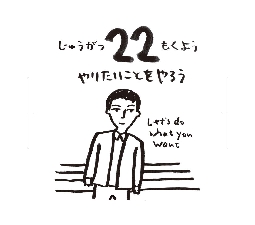 じゅうがつ 22 もくよう
やりたいことをやろう
Let's do
what you
want